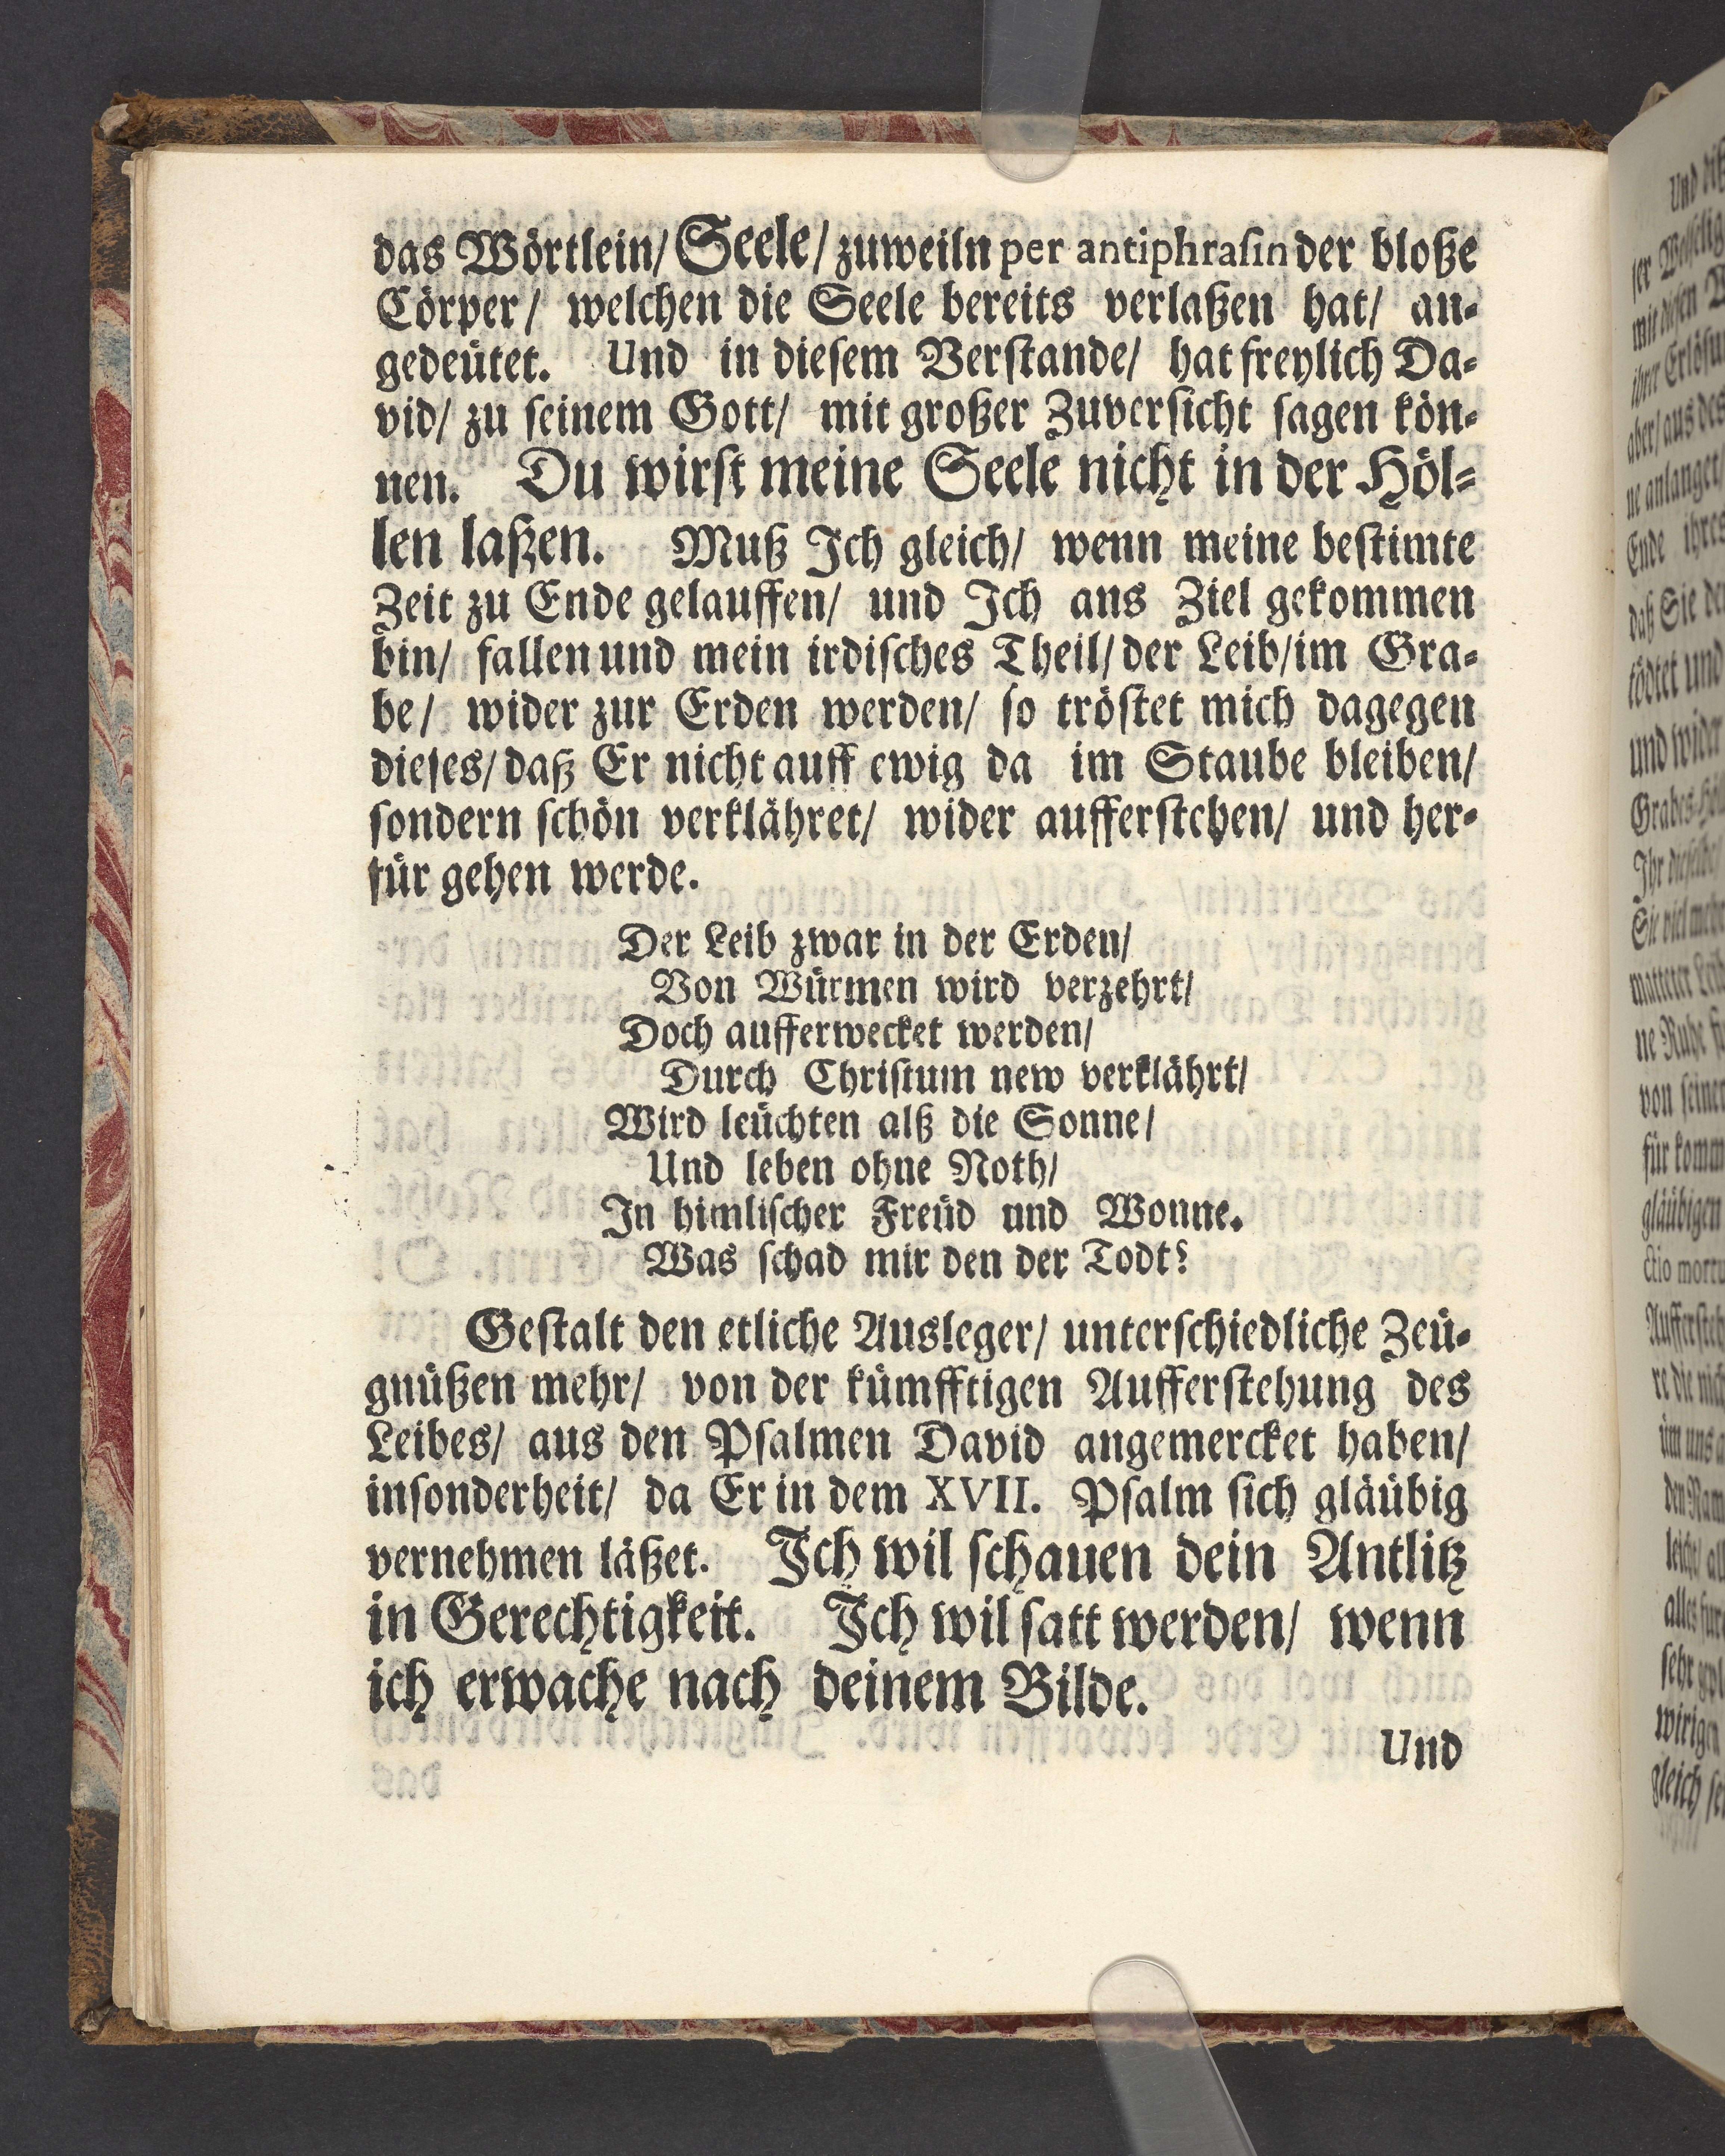 das Wörtlein/ Seele/ zuweiln per antiphraſin der bloße
Cörper/ welchen die Seele bereits verlaßen hat/ an⸗
gedeütet. Und in dieſem Verſtande/ hat freylich Da⸗
vid/ zu ſeinem Gott/ mit großer Zuverſicht ſagen kön⸗
nen. Du wirſt meine Seele nicht in der Höl⸗
len laßen. Muß Ich gleich/ wenn meine beſtimte
Zeit zu Ende gelauffen/ und Ich ans Ziel gekommen
bin/ fallen und mein irdiſches Theil/ der Leib/ im Gra⸗
be/ wider zur Erden werden/ ſo tröſtet mich dagegen
dieſes/ daß Er nicht auff ewig da im Staube bleiben/
ſondern ſchön verklähret/ wider aufferſtehen/ und her⸗
für gehen werde.
Der Leib zwar in der Erden/
Von Würmen wird verzehrt/
Doch aufferwecket werden/
Durch Chriſtum new verklährt/
Wird leüchten alß die Sonne/
Und leben ohne Noth/
In himliſcher Freüd und Wonne.
Was ſchad mir den der Todt?
Geſtalt den etliche Ausleger/ unterſchiedliche Zeü⸗
gnüßen mehr/ von der kümfftigen Aufferſtehung des
Leibes/ aus den Pſalmen David angemercket haben/
inſonderheit/ da Er in dem XVII. Pſalm ſich gläübig
vernehmen läßet. Ich wil ſchauen dein Antlitz
in Gerechtigkeit. Ich wil ſatt werden/ wenn
ich erwache nach deinem Bilde.
Und